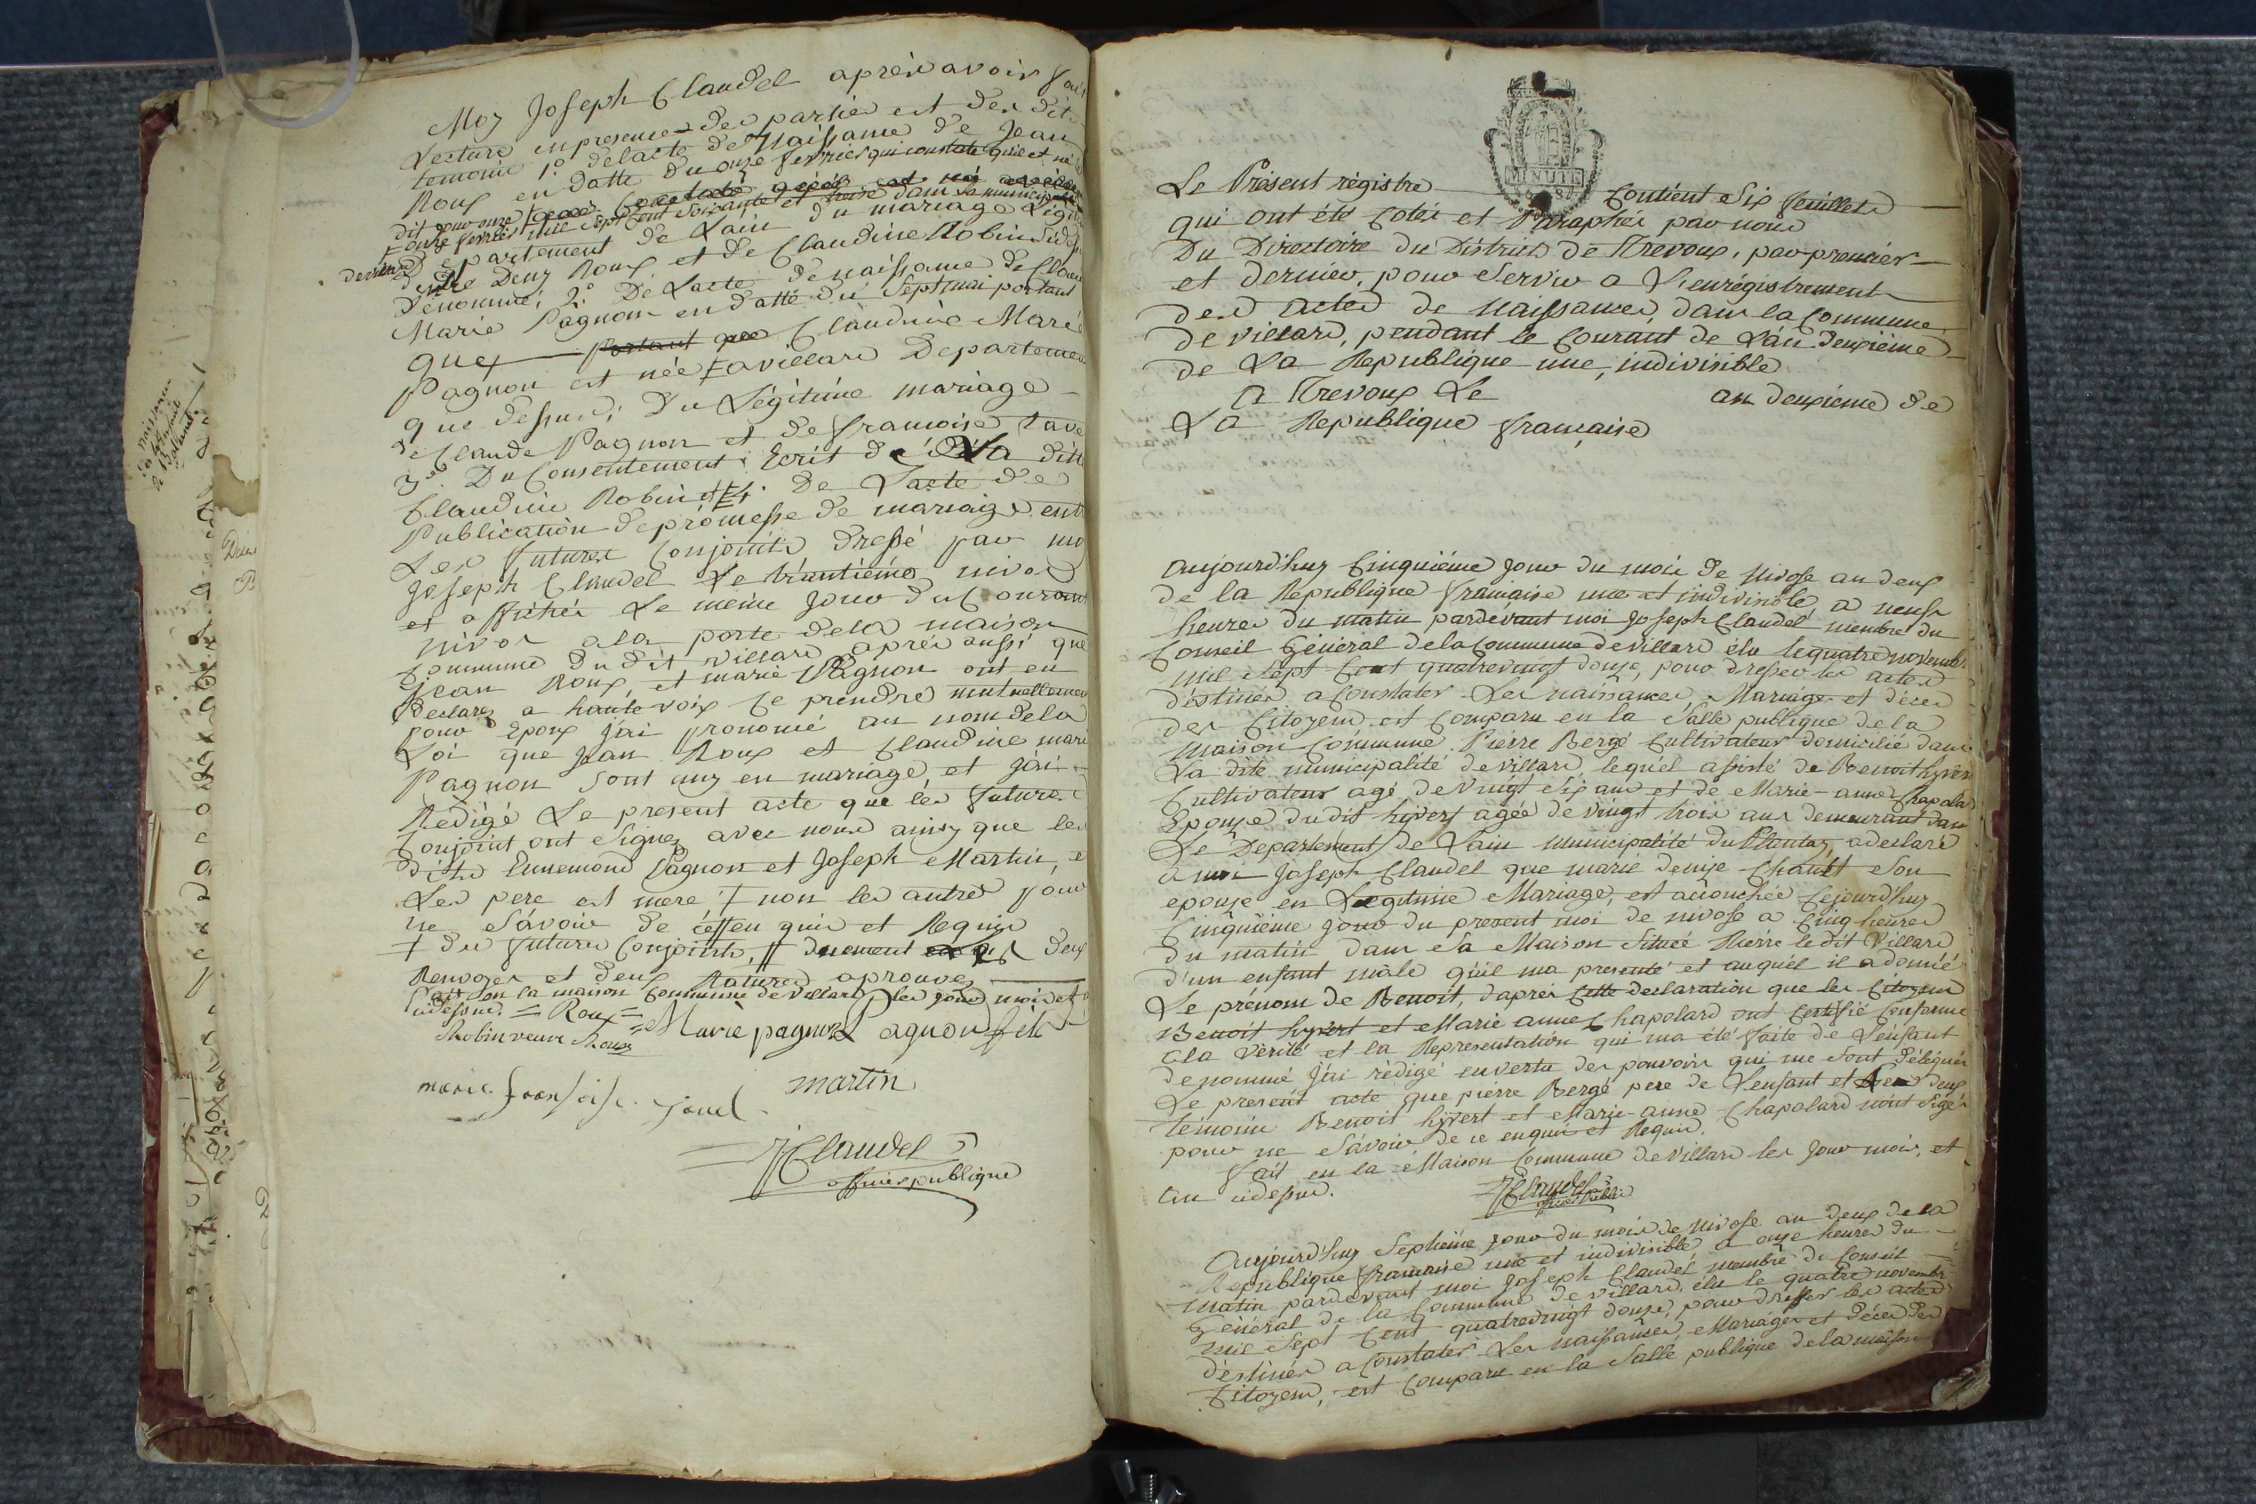 Moy Joseph Claudel après avoir fait
Lecture en presence des parties et des dit
temoins 1º delacte de Naissance de Jean
Roux en datte du onze fevrier qui constate quil et né
onze fevrier mille Sept Cent Soixante et treize dans sa municipalité
departement de Lain du mariage Légit
dentre Deux Roux et de Claudine Robin
dénommé, 2º De Lacte de naissance de Claudine
Marie Pagnon en datte du Sept mai portant
que portant que Claudine Marie
Pagnon est née a villars Departement
que dessus, Du Légitime mariage
de Claude Pagnon et de francoise
3º Du Consentement Ecrit de La dite
Claudine Robin 4º De Lacte de
Publication de promesse de mariage entre
Les futures Conjoints dressé par moy
Joseph Claudel Le trantiéme nivos
et affichés Le meme Jour du Courant
nivos a la porte dela maison
Commune du dit villars aprés aussi que
Jean Roux, et marie Pagnon ont eu
Declarez a haute voix Se prendre mutuellement
pour Epoux Jai prononcé au nom dela
Loi que Jean Roux et Claudine marie
Pagnon Sont uny en mariage, et Jai
Redigé Le present acte que les futures
Conjoint ont Signez avec nous ainsy que les
dits Ennemond Pagnon et Joseph Martin, et
Les pere est mere ‡ non les autres pour
ne Sávoir de ce enquis et Requis
‡ des futures Conjoints, ⸗ deux
Renvoyer et deux Ratures aprouvez
fait en la maison Commune de villars les Jour mois et
cidessus. = Roux =
Robin veuve Roux Marie pagnon Pagnon fils
marie fransoise martin
JClaudel
officier publique
Le Présent régistre Contient Six feuillets
qui ont été Cotés et Paraphés par nous
Du Directoire du District de Trevoux, par premier
et dernier, pour Servir a L'enrégistrement
des actes de Naissances, dans la Commune
de villars, pendant le Courant de L'an deuxième
de La Republique une, indivisible
A Trevoux Le an deuxieme de
La Republique française
MINUTE
Aujourd'huy Cinquiéme jour du mois de Nivose an deux
de la Republique française une et indivisible, a neuf
heures du matin pardevant moi Joseph Claudel membre du
Conseil Général de la Commune de villars élu le quatre novembre
mil Sept Cent quatrevingt douze, pour dresser les actes
déstinés a Constater Les naissances, Mariages et décés
des Citoyens est Comparu en la Salle publique de la
Maison Commune Pierre Bergé Cultivateur domicilié dans
La dite municipalité de villars, lequel assisté de Benoit hyvert
Cultivateur agé de Vingt Six ans et de Marie-anne Chapolard
Epouse dudit hyvert agée de vingt trois ans demeurant dans
Le Département de Lain Municipalité du Plantay, adeclaré
a moi Joseph Claudel que marie denise Chanet Son
epouse en Legitime Mariage, est accouchée Cejourd'huy
Cinquième Jour du present moi de nivose a Cinq heures
du matin dans Sa Maison Située Riére le dit Villars
d'un enfant male quil ma presenté et auquel il adonné
Le prenom de Benoit, daprés Cette declaration que les Citoyens
Benoit hyvert et Marie anne Chapolard ont Certifié Conforme
ala vérité et la Representation qui ma été faite de L'enfant
denommé Jai rédigé envertu des pouvoirs qui me Sont délégués
Le present acte que pierre Bergé pere de L'enfant et Les deux
témoins Benoit hyvert et Marie anne Chapolard nont Signés
pour ne Sávoir de ce enquis et Requis.
fait en la Maison Commune de Villars les Jour mois, et
an cidessus. JClaudel
officier public
Aujourd'huy Septiéme jour du mois de Nivose an deux de la
Republique française une et indivisible, a onze heures du
matin pardevant moi Joseph Claudel membre du Conseil
Général de la Commune de villars, élu le quatre novembre
mil Sept Cent quatrevingt douze, pour dresser les actes
déstinés a Constater Les naissances, Mariages et décés des
Citoyens, est Comparu en la Salle publique de la maison